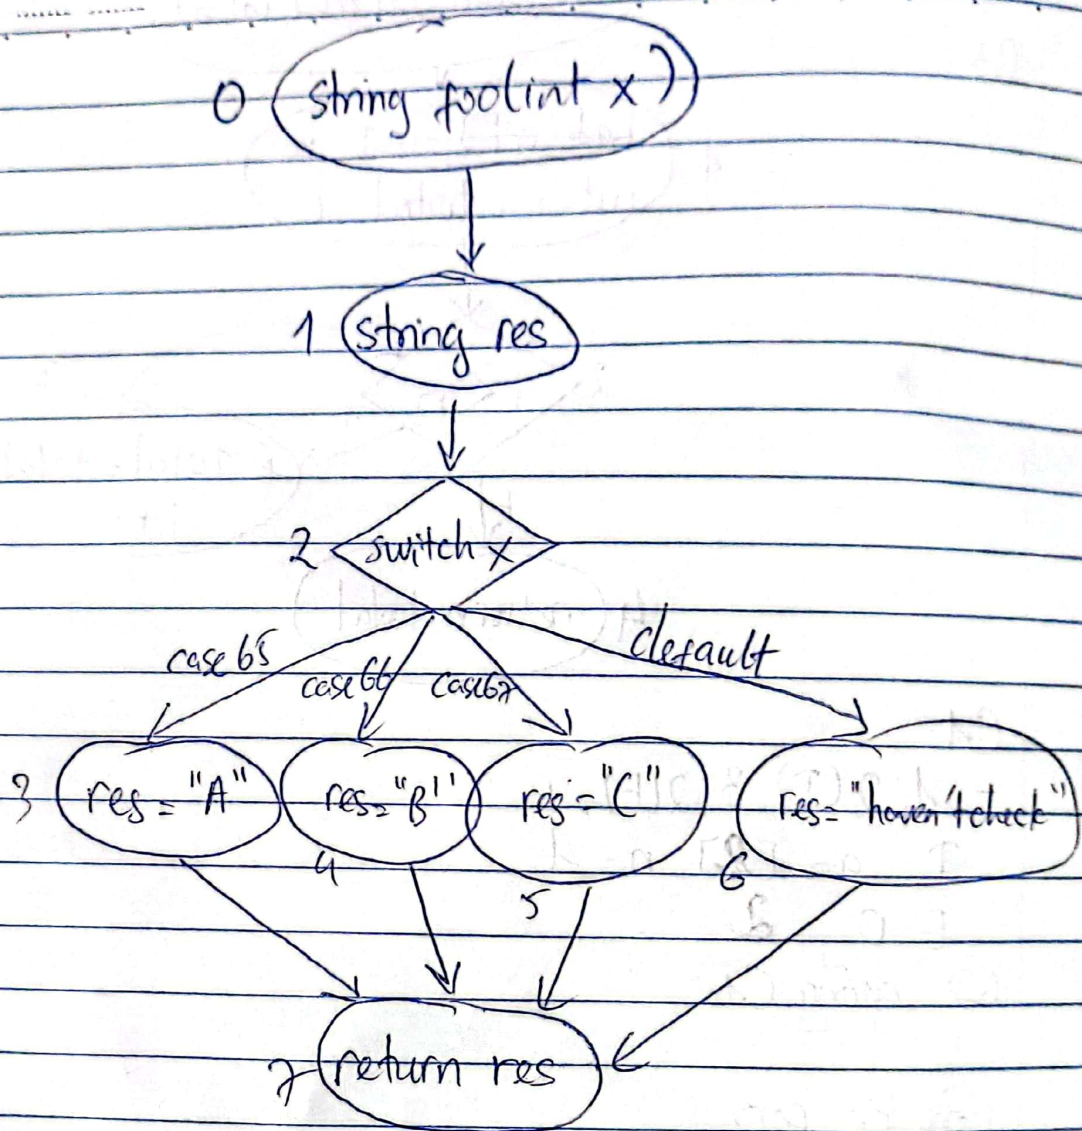 0 string foo(int x)
1 string res
2 switch x
case 65 case 66 case 67 default
3 res = "A" res = "B" res = "C" res = "haven't check"
4 5 6
7 return res